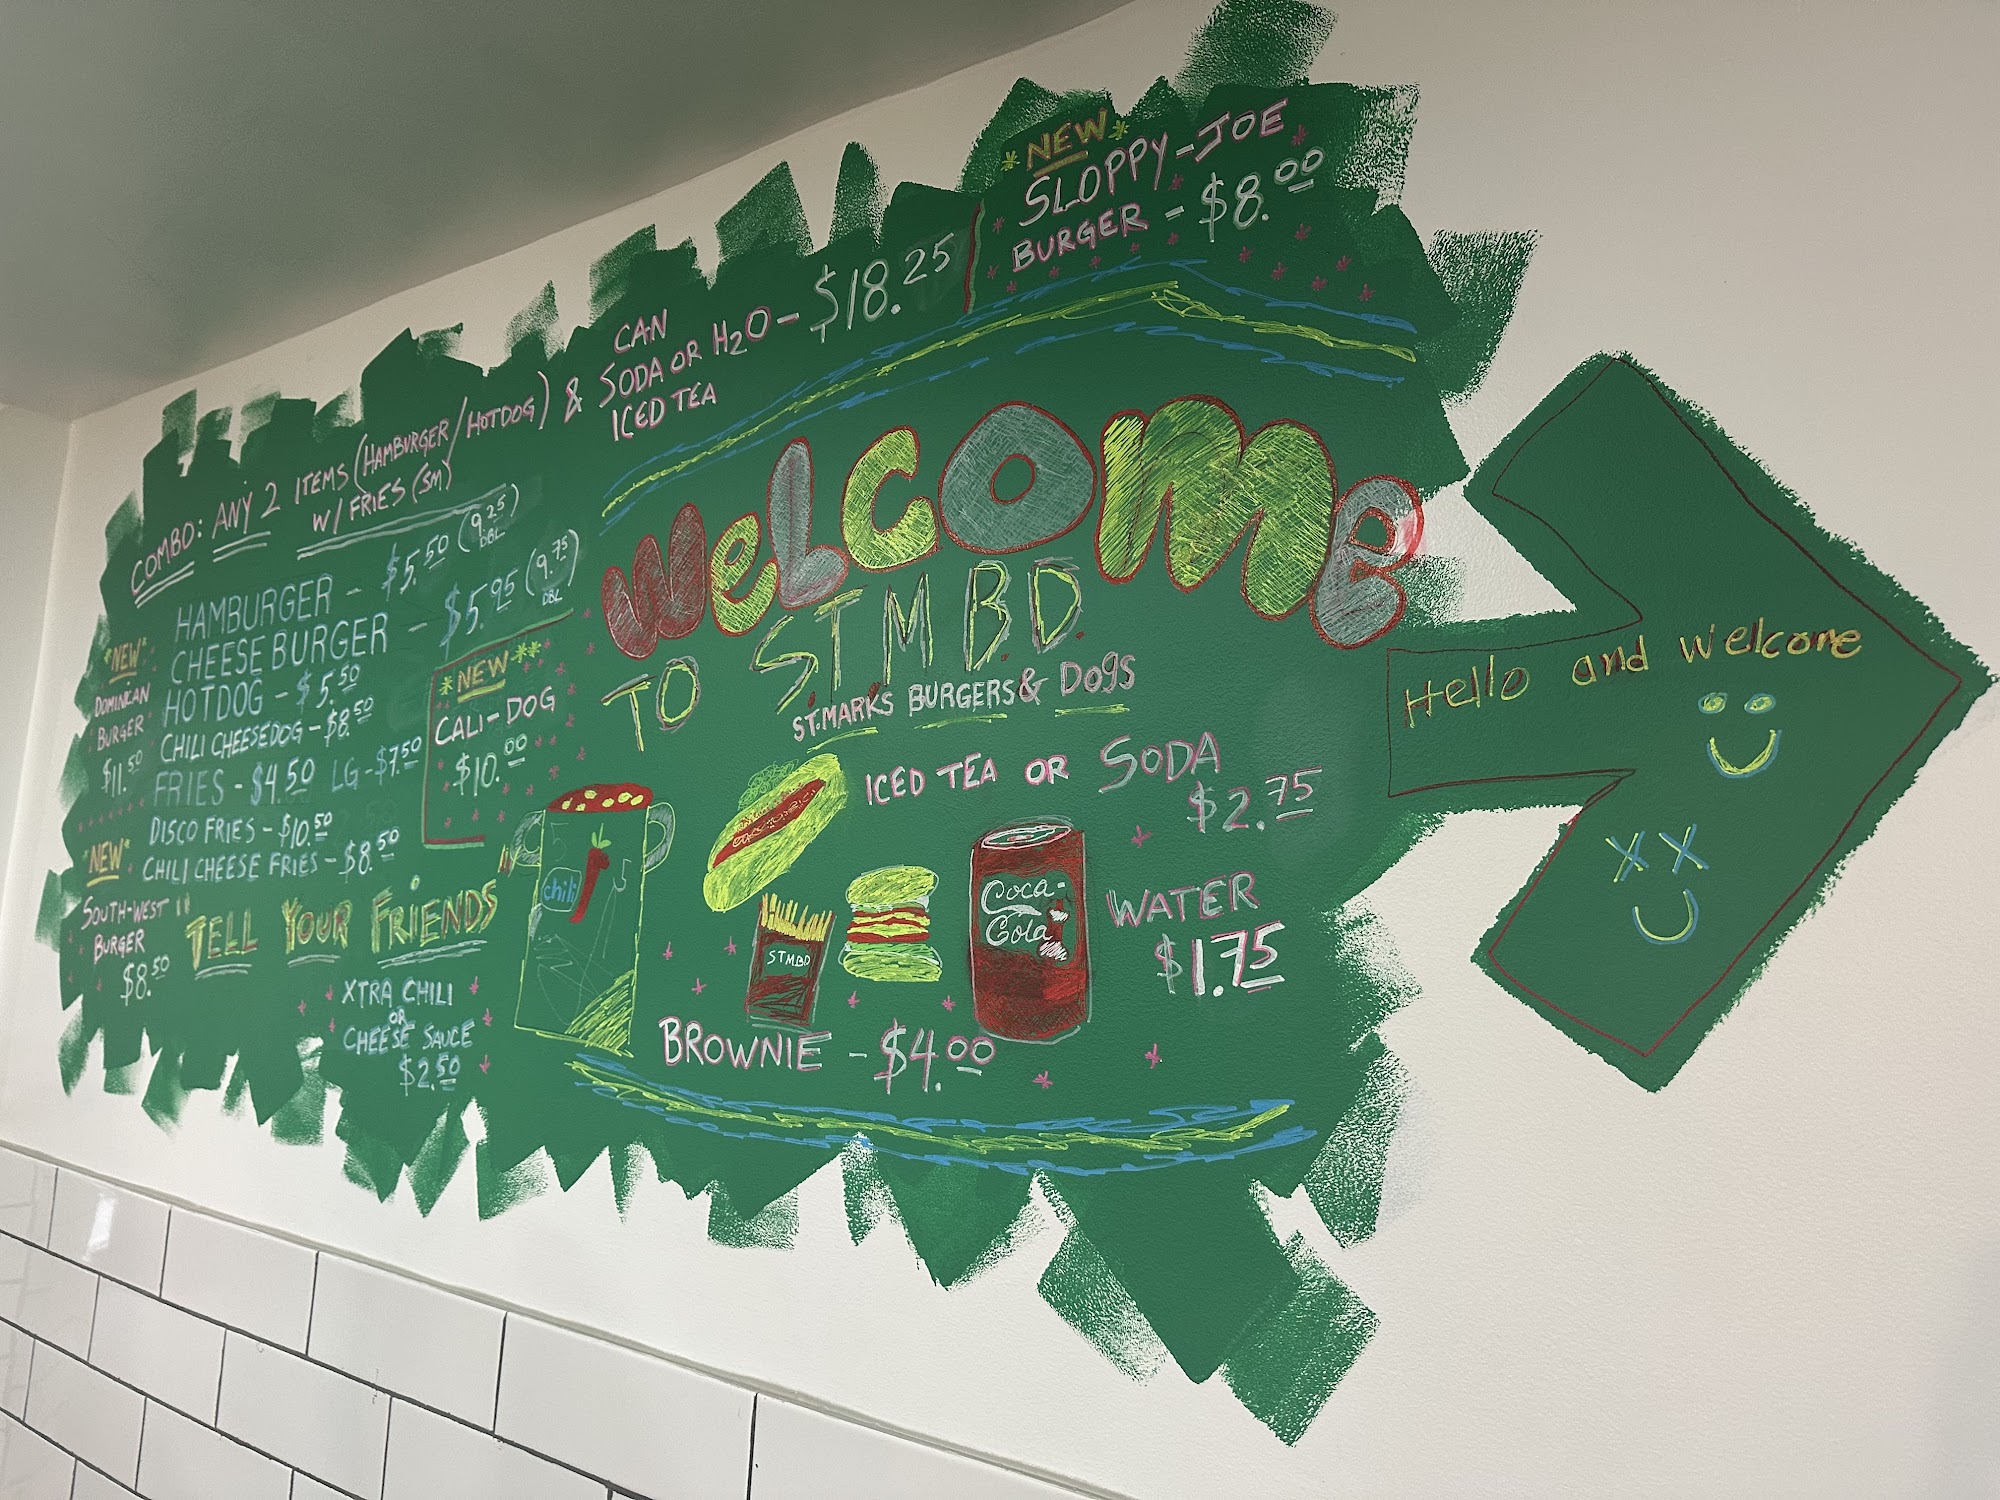 COMBO: ANY 2 ITEMS (HAMBURGER/HOTDOG) & CAN SODA OR H2O - $18.25
W/ FRIES (SM)
ICED TEA
*NEW*
SLOPPY-JOE
BURGER - $8.00
HAMBURGER - $5.50 (9.25)
DBL
CHEESEBURGER - $5.95 (9.75)
DBL
HOTDOG - $5.50
CHILI CHEESEDOG - $8.50
FRIES - $4.50 LG - $7.50
DISCO FRIES - $10.50
CHILI CHEESE FRIES - $8.50
*NEW*
DOMINICAN
BURGER
$11.50
*NEW*
SOUTH-WEST
BURGER
$8.50
*NEW**
CALI-DOG
$10.00
"TELL YOUR FRIENDS"
XTRA CHILI
OR
CHEESE SAUCE
$2.50
WeLCOMe
TO S.T.M.B.D.
ST.MARKS BURGERS & DOGS
ICED TEA OR SODA
$2.75
chili
STMBD
Coca-
Cola
WATER
$1.75
BROWNIE - $4.00
Hello and Welcome